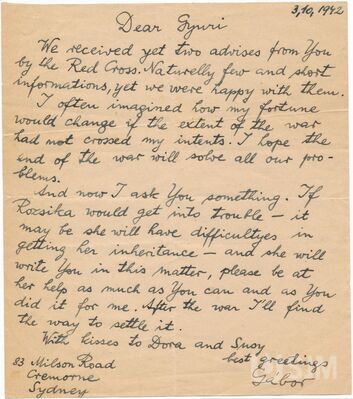 3,10,1942
Dear Gyuri
We received yet two advises from You
by the Red Cross. Naturelly few and short
informations, yet we were happy with them.
I often imagined how my fortune
would change if the extent of the war
had not crossed my intents. I hope the
end of the war will solve all our pro-
blems.
And now I ask You something. If
Rozsika would get into trouble — it
may be she will have difficultyes in
getting her inheritance — and she will
write You in this matter, please be at
her help as much as You can and as You
did it for me. After the war I'll find
the way to settle it.
With kisses to Dora and Susy
best greetings
Gabor
83 Milson Road
Cremorne
Sydney